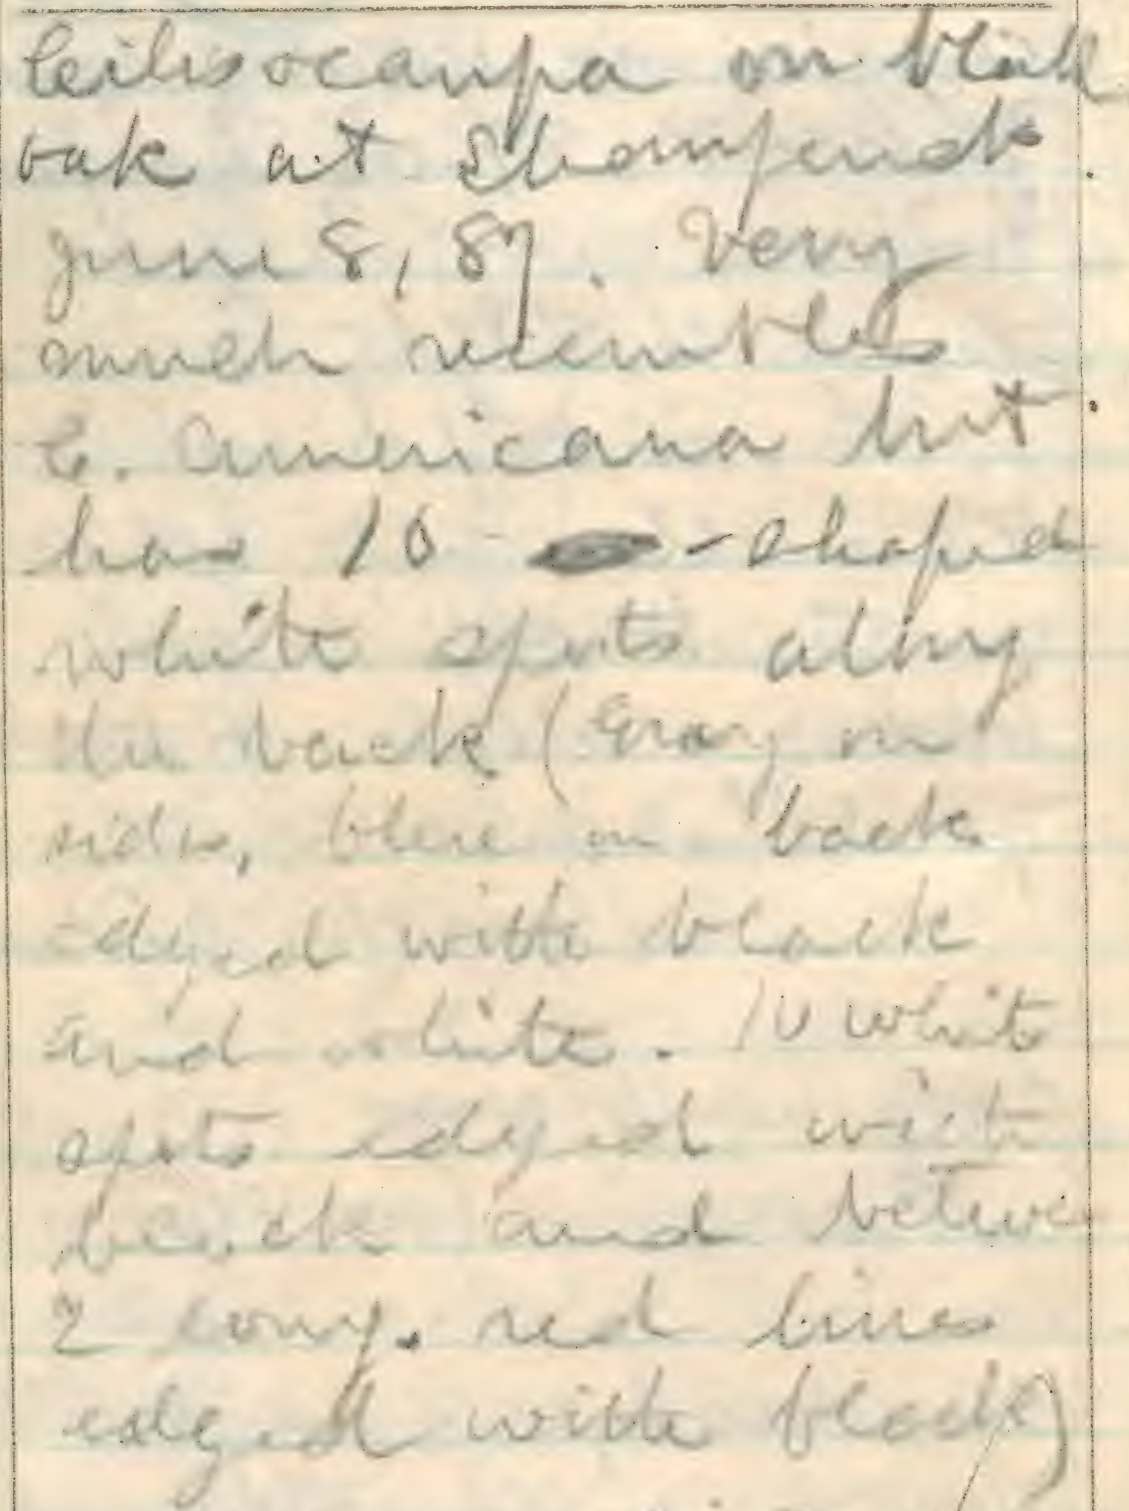 Clisiocampa on black
oak at
June 8, 87. Very
much resembles
C. Americana but
has 10 - shaped
white spots along
the back (Gray on
sides, blue on back
edged with black
and white. 10 white
spots edged with
black and betwee
2 long. red lines
edged with black)